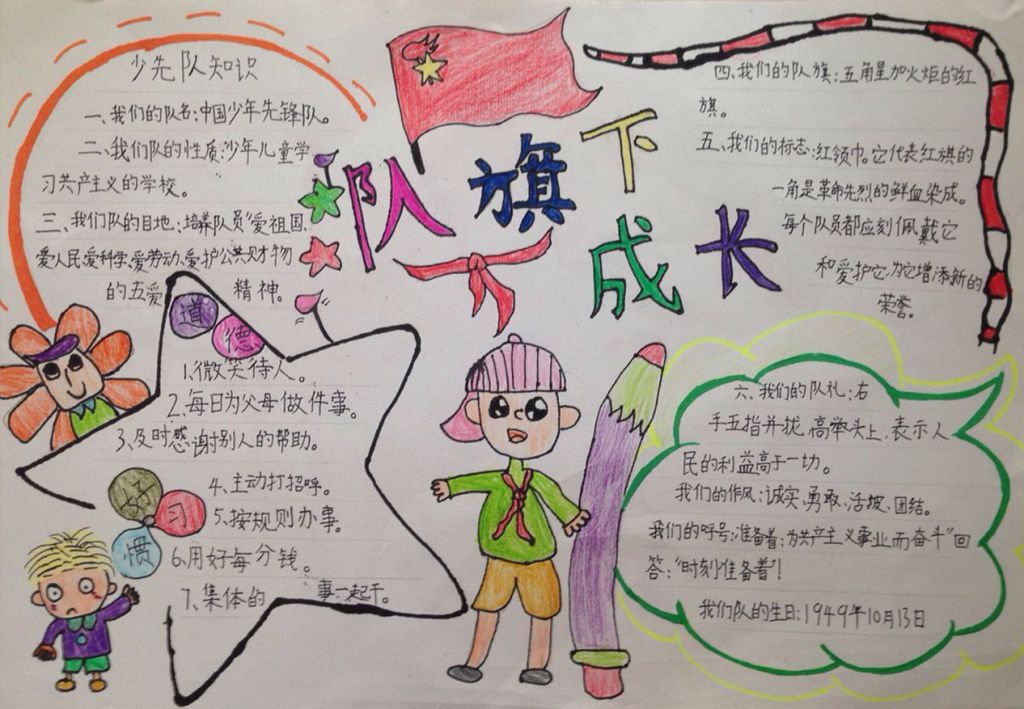 少先队知识
一、我们的队名:中国少年先锋队。
二、我们队的性质:少年儿童学
习共产主义的学校。
三、我们队的目地:培养队员"爱祖国、
爱人民爱科学、爱劳动、爱护公共财物
的五爱精神。
队旗下成长
四、我们的队旗:五角星加火炬的红
旗。
五、我们的标志:红领巾。它代表红旗的
一角是革命先烈的鲜血染成。
每个队员都应刻佩戴它
和爱护它,为它增添新的
荣誉。
道德
好习惯
1.微笑待人。
2.每日为父母做件事。
3.及时感谢别人的帮助。
4.主动打招呼。
5.按规则办事。
6.用好每分钱。
7.集体的事一起干。
六、我们的队礼:右
手五指并拢,高举头上,表示人
民的利益高于一切。
我们的作风:诚实、勇敢、活坡、团结。
我们的呼号:准备着:为共产主义事业而奋斗"回
答:"时刻准备着"!
我们队的生日:1949年10月13日